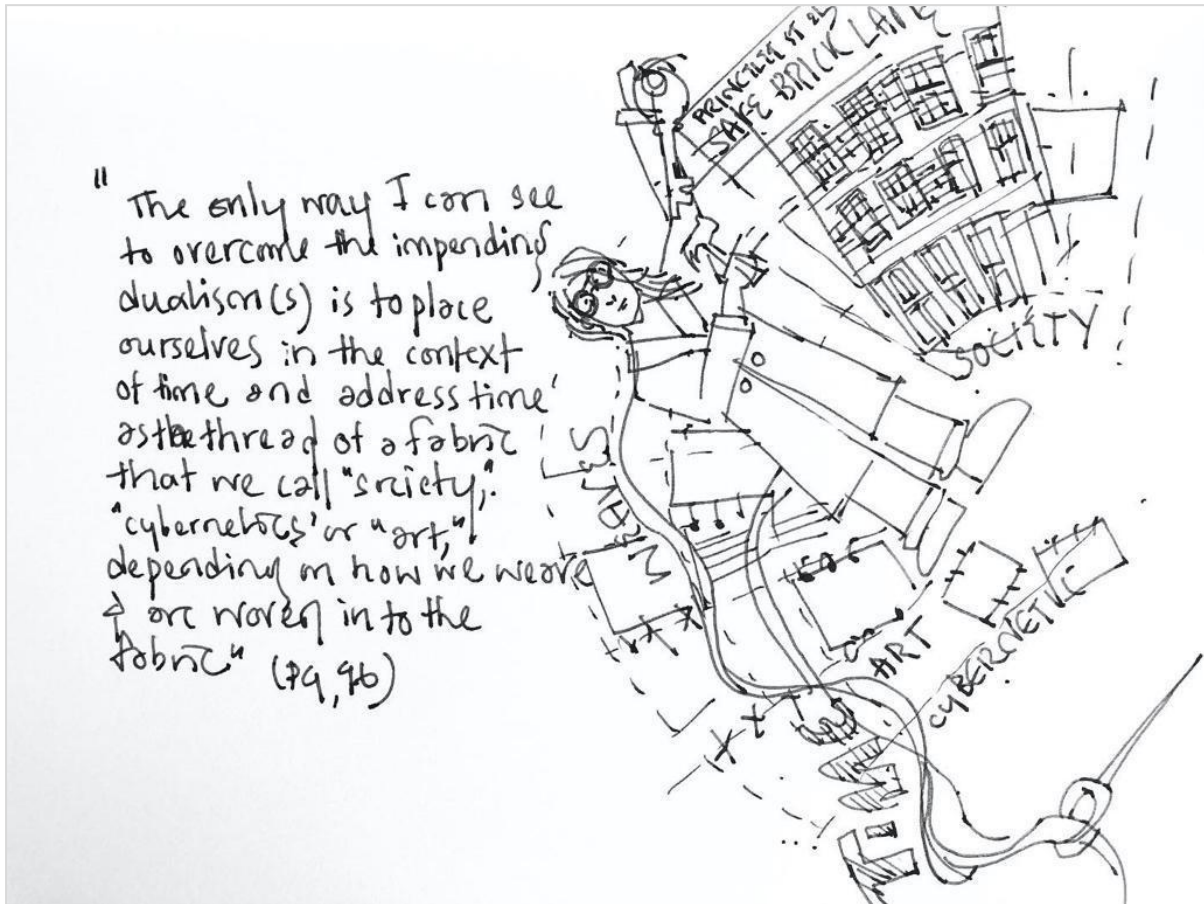 "The only way I can see
to overcome the impending
dualism(s) is to place
ourselves in the context
of time and address time
as the thread of a fabric
that we call "society,"
"cybernetics' or "art,"
depending on how we weave
& are woven in to the
fabric" (pg, 96)
PRINCELET ST
SAFE BRICK LANE
SOCIETY
ART
CYBERNETIC